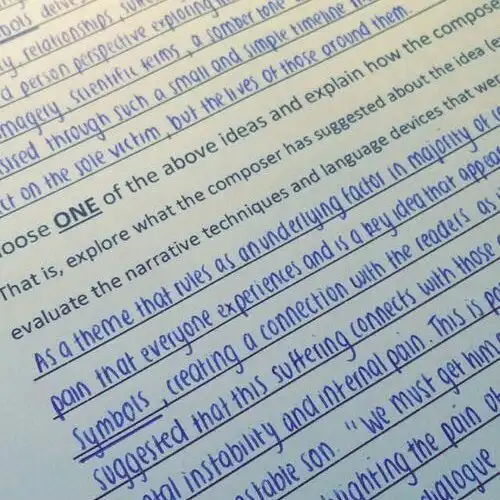 bols delves
y, relationships,
d person perspective exploring
magery, scientific terms, a somber tone
sised through such a small and simple timeline
ct on the sole victim, but the lives of those around them.
oose ONE of the above ideas and explain how the compose
That is, explore what the composer has suggested about the idea
evaluate the narrative techniques and language devices that we
As a theme that rules as an underlying factor in majority of
pain that everyone experiences and is a key idea that appea
Symbols, creating a connection with the readers as
suggested that this suffering connects with those
tal instability and internal pain. This is
stable son. "We must get him
lighting the pain
alogue